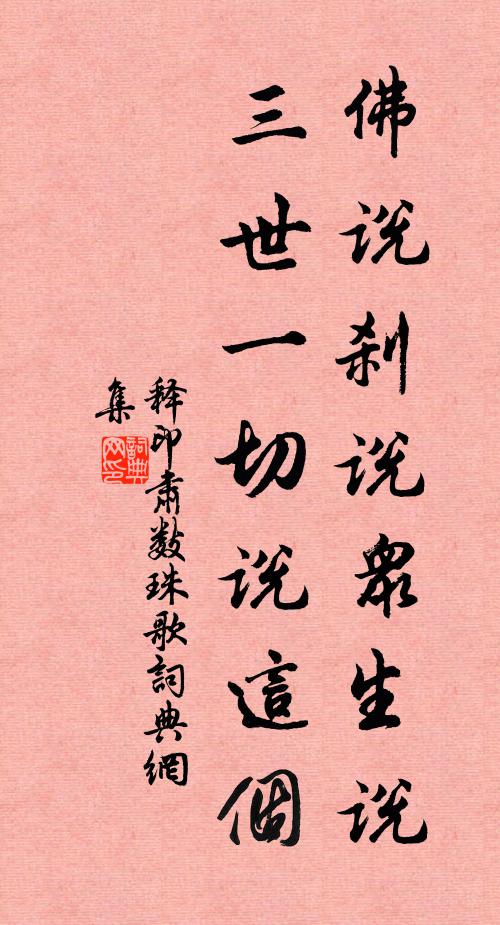 佛说刹说众生说
三世一切说這個
释印肃数珠歌詞典網
集
詞典网印